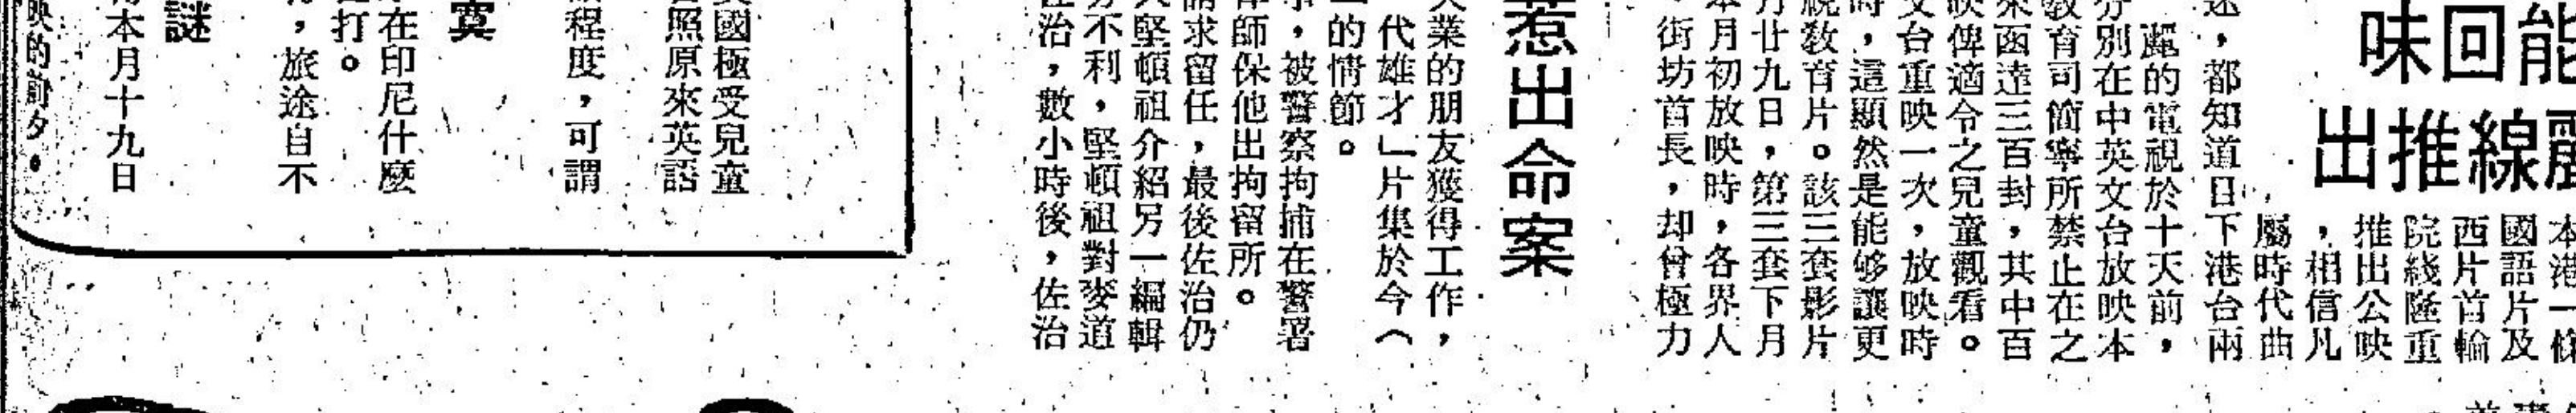 能回味
線推出
本港一條
國語片及
西片首輪
院綫隆重
推出公映
，相信凡
屬時代曲
迷，都知道日下港台兩
麗的電視於十天前，
分別在中英文台放映本
教育司簡寧所禁止在之
來函達三百封，其中百
映俾適令之兒童觀看。
文台重映一次，放映時
時，這顯然是能够讓更
視教育片。該三套影片
月廿九日，第三套下月
本月初放映時，各界人
，街坊首長，却曾極力
惹出命案
失業的朋友獲得工作，
代雄才」片集於今（
的情節。
事，被警察拘捕在警署
律師保他出拘留所。
請求留任，最後佐治仍
堅頓祖介紹另一編輯
不利，堅頓祖對麥道
佐治，數小時後，佐治
英國極受兒童
照原來英語
程度，可謂
寞
在印尼什麼
打。
，旅途自不
謎
本月十九日
映的前夕。